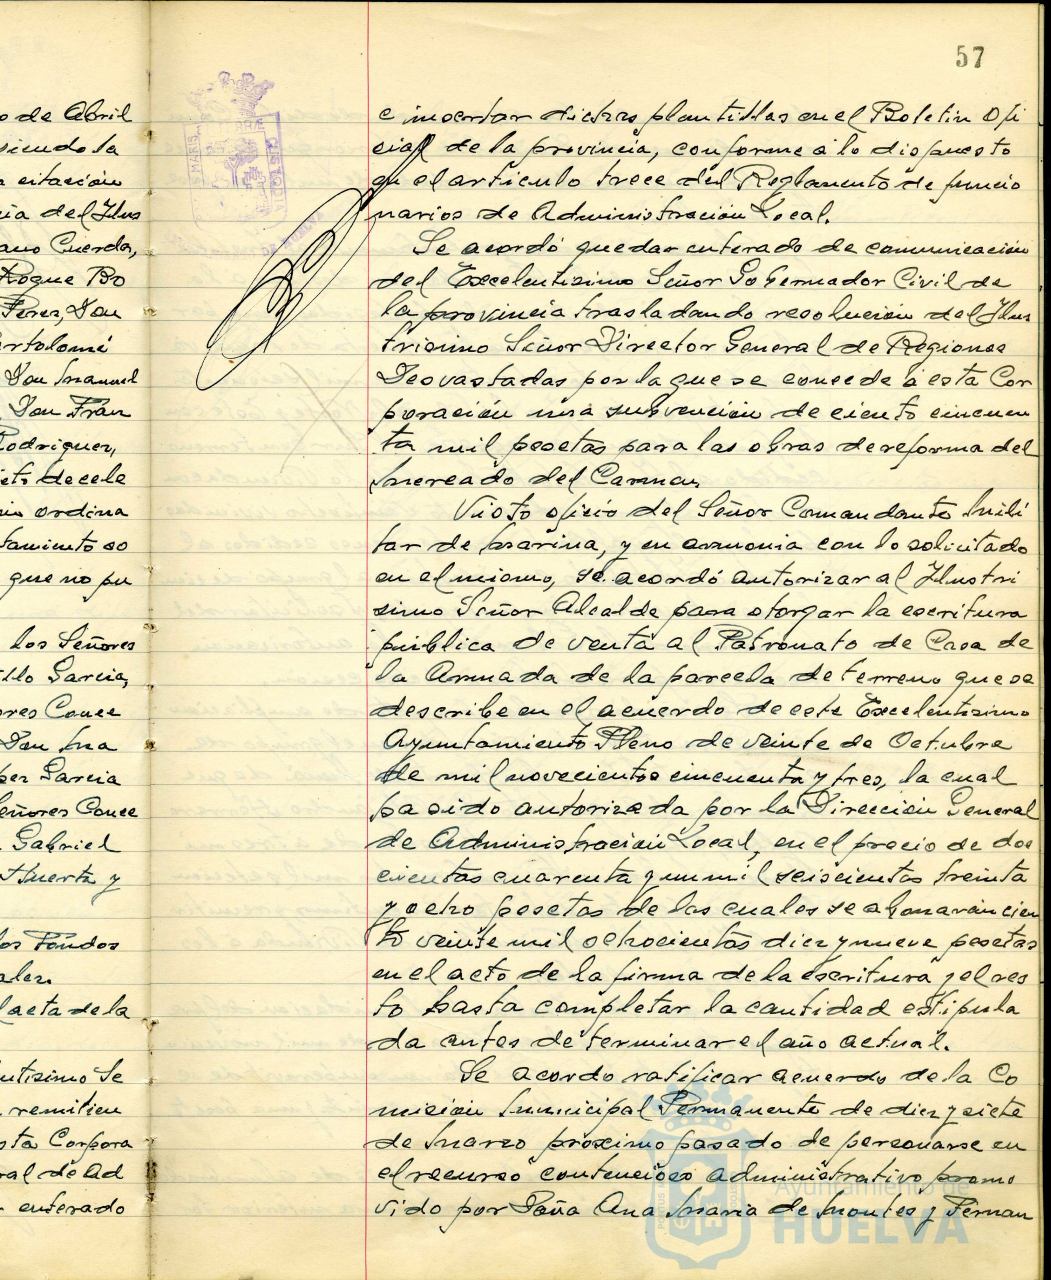 57
o de Abril
siendo la
citación
ia del Ylus
ano Cuerda,
Roque Bo
Perez, Don
artolomé
Don Manuel
Don Fran
Rodriguez,
eto de cele
ordina
tamiento so
que no pu
los Señores
illo Garcia,
ores Conce
Don Ma
per Garcia
eñores Conce
Gabriel
Huerta y
los Fondos
ales.
l acta de la
ntisimo Se
remitien
sta Corpora
ral de Ad
enterado
e insertar dichas plantillas en el Boletin Ofi
cial de la provincia, conforme á lo dispuesto
en el articulo trece del Reglamento de funcio
narios de Administración Local.
Se acordó quedar enterado de comunicación
del Excelentisimo Señor Gobernador Civil de
la provincia trasladando resolución del Ylus
trisimo Señor Director General de Regiones
Devastadas por la que se concede á esta Cor
poración una subvención de ciento cincuen
ta mil pesetas para las obras de reforma del
Mercado del Carmen.
Visto oficio del Señor Comandante Mili
tar de Marina, y en armonia con lo solicitado
en el mismo, se acordó autorizar al Ylustri
simo Señor Alcalde para otorgar la escritura
pública de venta al Patronato de Casa de
la Armada de la parcela de terreno que se
describe en el acuerdo de este Excelentisimo
Ayuntamiento Pleno de veinte de Octubre
de mil novecientos cincuenta y tres, la cual
ha sido autorizada por la Dirección General
de Administración Local, en el precio de dos
cientas cuarenta y un mil seiscientas treinta
y ocho pesetas de las cuales se abonarán cien
to veinte mil ochocientas diez y nueve pesetas
en el acto de la firma de la escritura y el res
to hasta completar la cantidad estipula
da antes de terminar el año actual.
Se acordo ratificar acuerdo de la Co
misión Municipal Permanente de diez y siete
de Marzo próximo pasado de personarse en
el recurso contencioso administrativo promo
vido por Doña Ana Maria de Montes y Fernan
Ayuntamiento de
HUELVA